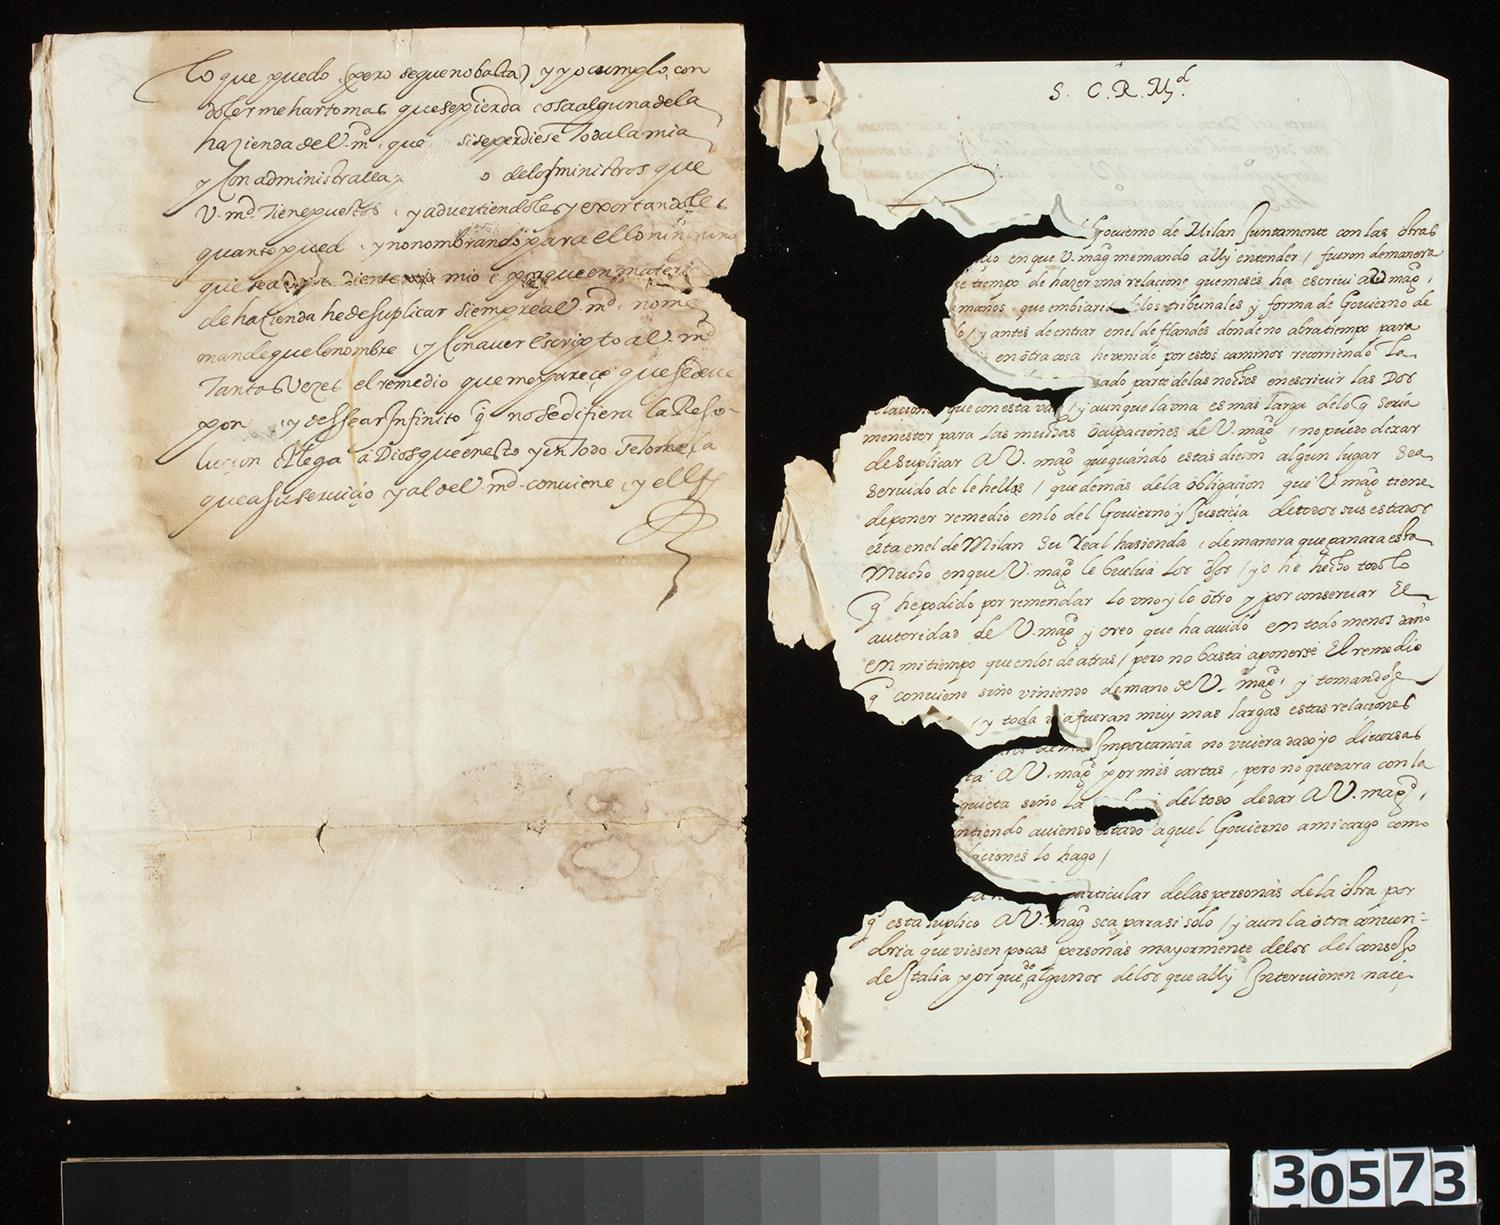 lo que puedo (pero se que no basta) y yo cumplo con
dolerme harto mas que se pierda cosa alguna de la
hazienda de V. md. que si se perdiese toda la mia
y con administralla o de los ministros que
V. md. tiene puestos y advirtiendoles y exortandoles
quanto pued y no nombrando para ello ninguno
que sea diente mio porque en materi
de hazienda he de suplicar siempre a V. md. no me
mande que le nombre y con aver escripto a V. md.
tantas vezes el remedio que me pareçe que se deve
pon y dessear infinito q no se difiera la Reso-
lucion Plega a Dios que en esto y en todo se tome la
que a su servicio y al de V. md. conviene y ellos
S. C. R. Mgd.
Govierno de Milan Juntamente con las otras
en que V. magd me mando alli entender / fueron de manera
tiempo de hazer una relacion que meses ha escrivi a V. magd,
manos que embiaria los tribunales y forma de Govierno de
y antes de entrar en el de flandes donde no abra tiempo para
en otra cosa he venido por estos caminos recorriendo la
sado parte de las noches en escrivir las Dos
elacion que con esta va / y aunque la una es mas larga de lo q seria
menester para las muchas ocupaciones de V. magd, no puedo dexar
de suplicar A V. magd que quando estas dieren algun lugar sea
servido de lehellas / que demas de la obligacion que V. magd tiene
de poner remedio en lo del Govierno y Justicia de todos sus estados
esta en el de Milan su Real hazienda, de manera que
mucho en que V. magd le buelva los ojos / yo he hecho todo lo
q he podido por remendar lo uno y lo otro y por conservar El
autoridad de V. magd y creo que ha avido en todo menos daño
en mi tiempo que en los de atras / pero no basta a ponerse El remedio
q conviene sino viniendo de mano de V. magd, y tomandose
(y toda v a fueran muy mas largas estas relaciones
Importancia no uviera dado yo diversas
ta A V. magd por mis cartas, pero no quedara con la
quieta sino la del todo de dar A V. magd,
ntiendo aviendo estado aquel Govierno a mi cargo como
laciones lo hago /
articular de las personas de la otra por
q esta suplico A V. magd sea para si solo / y aun la otra conven-
dria que viesen pocas personas mayormente de los del consejo
de Italia porque de algunos de los que alli Intervienen naçe
30573